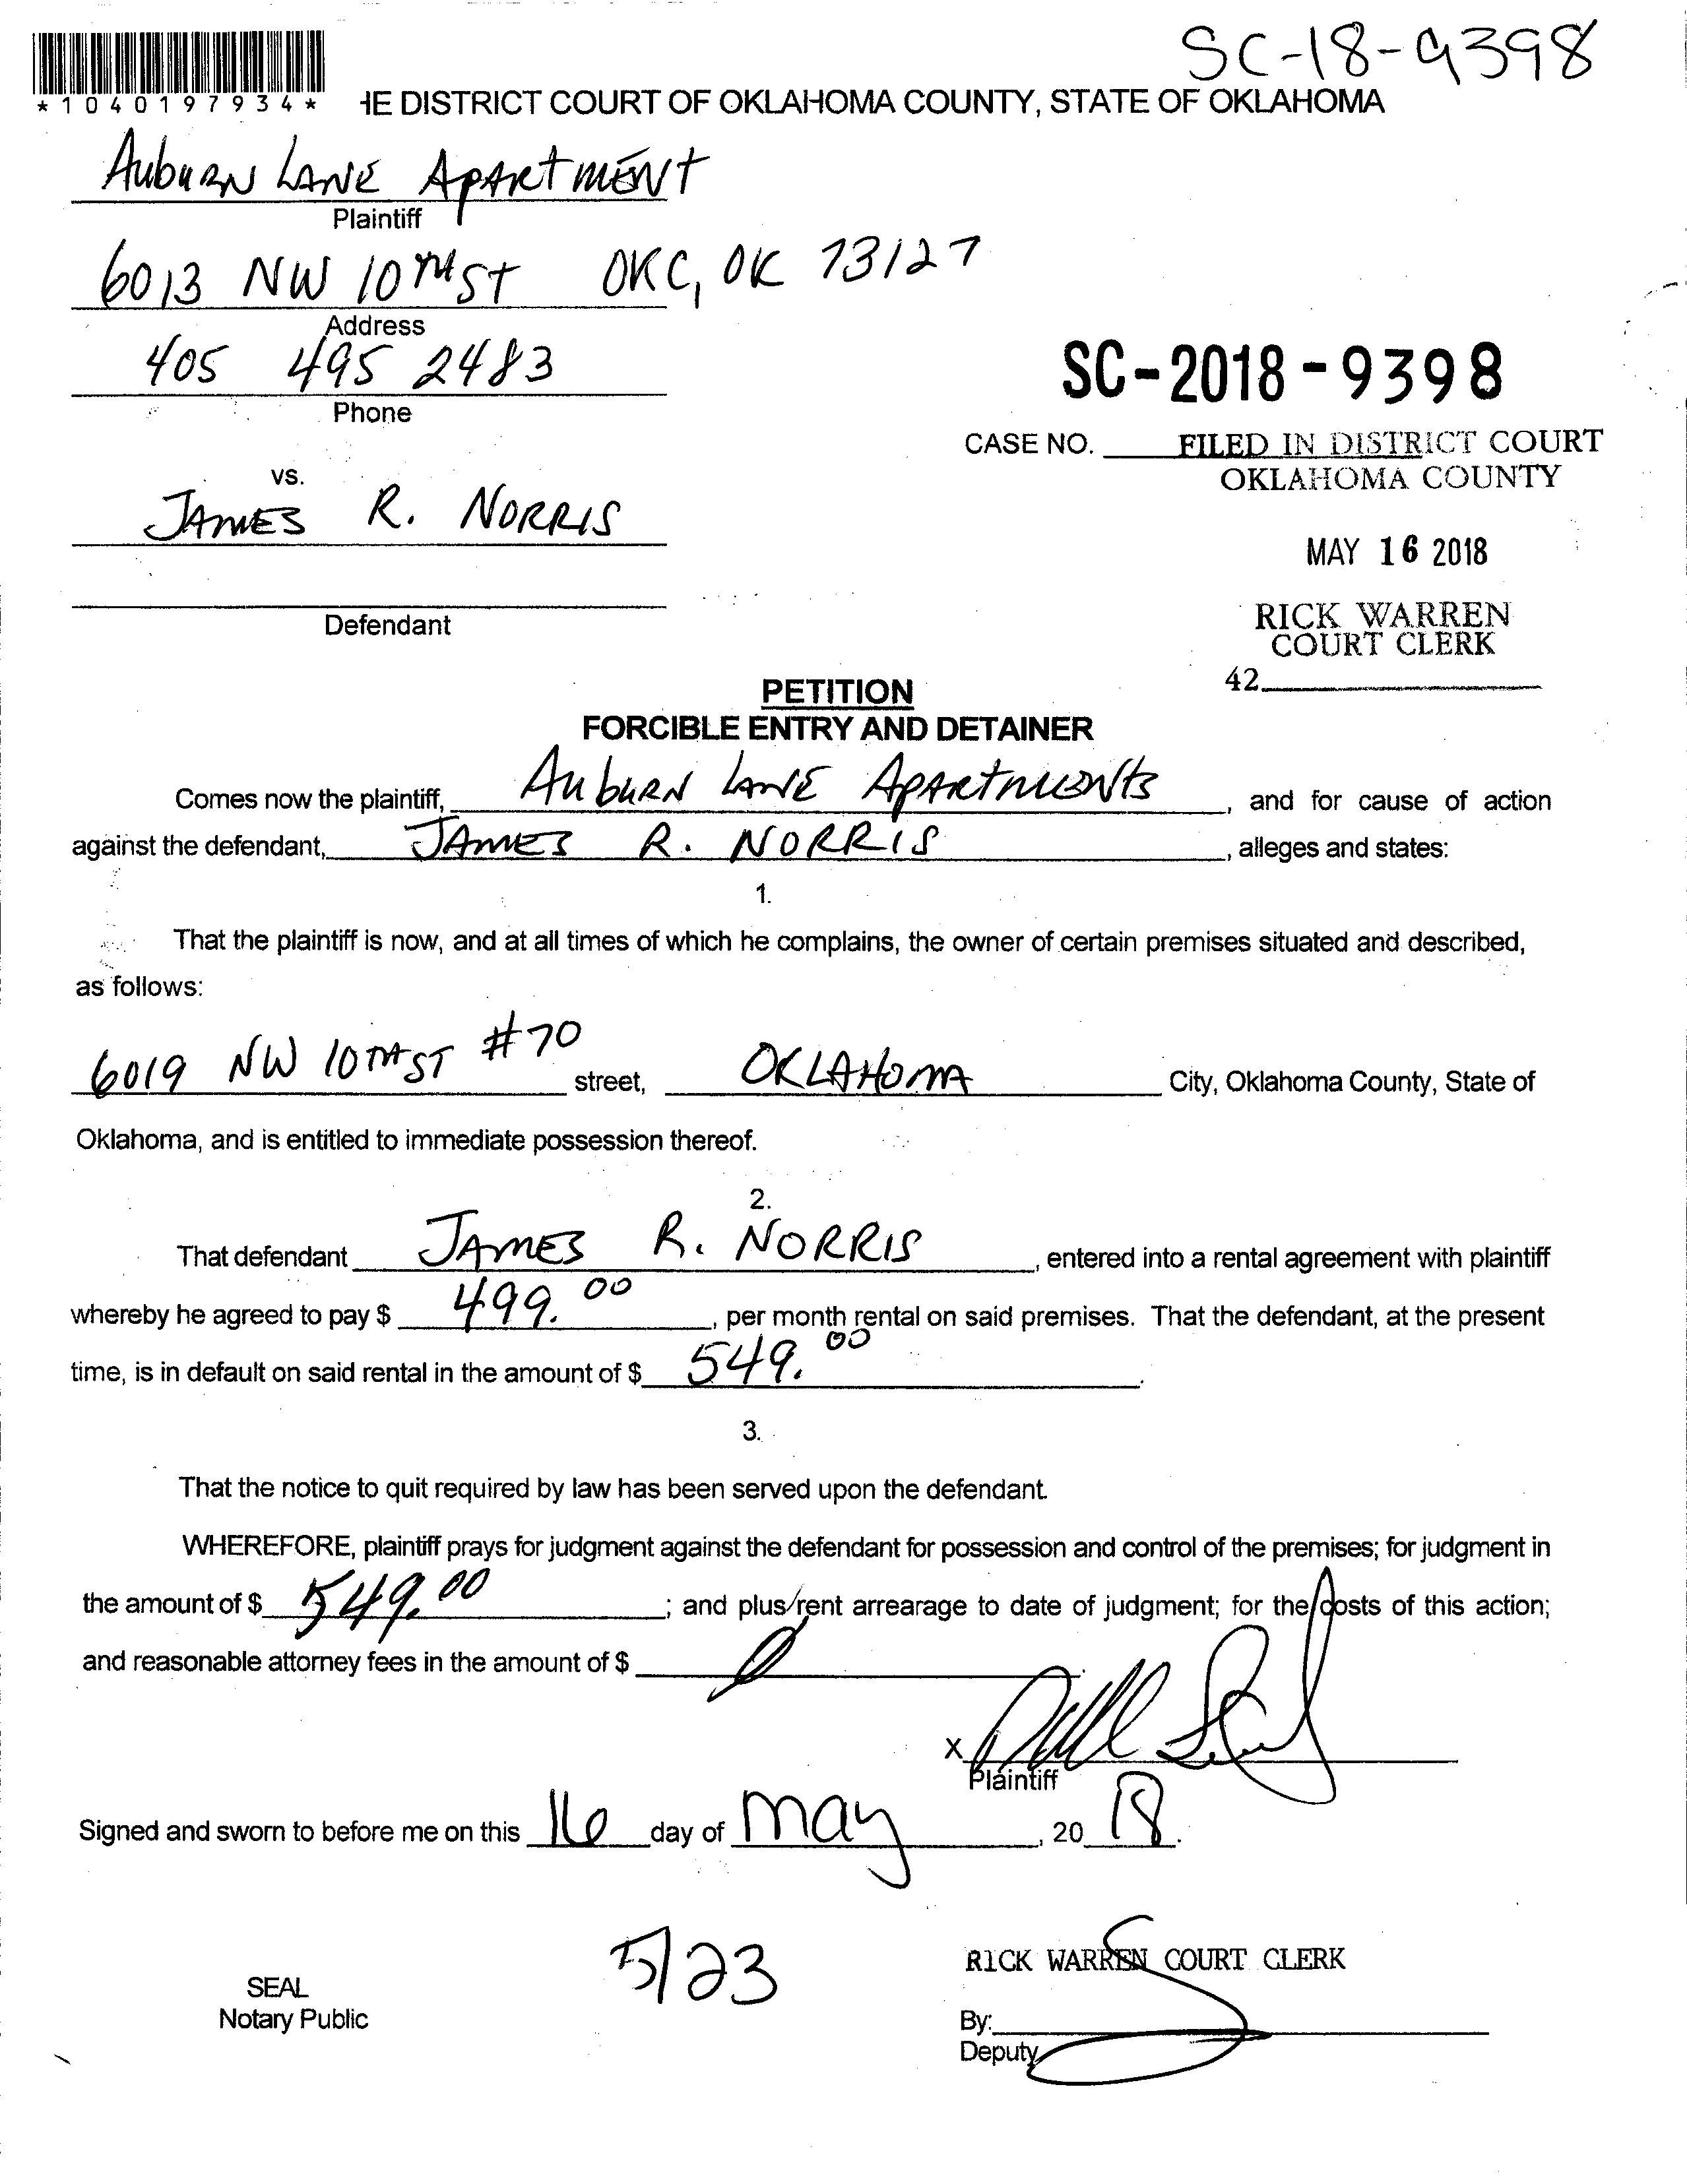 SC-18-9398
*1040197934*
HE DISTRICT COURT OF OKLAHOMA COUNTY, STATE OF OKLAHOMA
Auburn Lane Apartment
Plaintiff
6013 NW 10TH ST OKC, OK 73127
Address
405 495 2483
Phone
SC-2018-9398
CASE NO. FILED IN DISTRICT COURT
OKLAHOMA COUNTY
vs.
JAMES R. NORRIS
MAY 16 2018
Defendant
RICK WARREN
COURT CLERK
42
PETITION
FORCIBLE ENTRY AND DETAINER
Comes now the plaintiff, Auburn Lane Apartments, and for cause of action
against the defendant, JAMES R. NORRIS, alleges and states:
1.
That the plaintiff is now, and at all times of which he complains, the owner of certain premises situated and described,
as follows:
6019 NW 10TH ST #70 street, OKLAHOMA City, Oklahoma County, State of
Oklahoma, and is entitled to immediate possession thereof.
2.
That defendant JAMES R. NORRIS, entered into a rental agreement with plaintiff
whereby he agreed to pay $ 499.00, per month rental on said premises. That the defendant, at the present
time, is in default on said rental in the amount of $ 549.00.
3.
That the notice to quit required by law has been served upon the defendant.
WHEREFORE, plaintiff prays for judgment against the defendant for possession and control of the premises; for judgment in
the amount of $ 549.00; and plus/rent arrearage to date of judgment; for the costs of this action;
and reasonable attorney fees in the amount of $ 0.
X
Plaintiff
Signed and sworn to before me on this 16 day of May, 20 18.
5/23
RICK WARREN COURT CLERK
SEAL
Notary Public
By:
Deputy